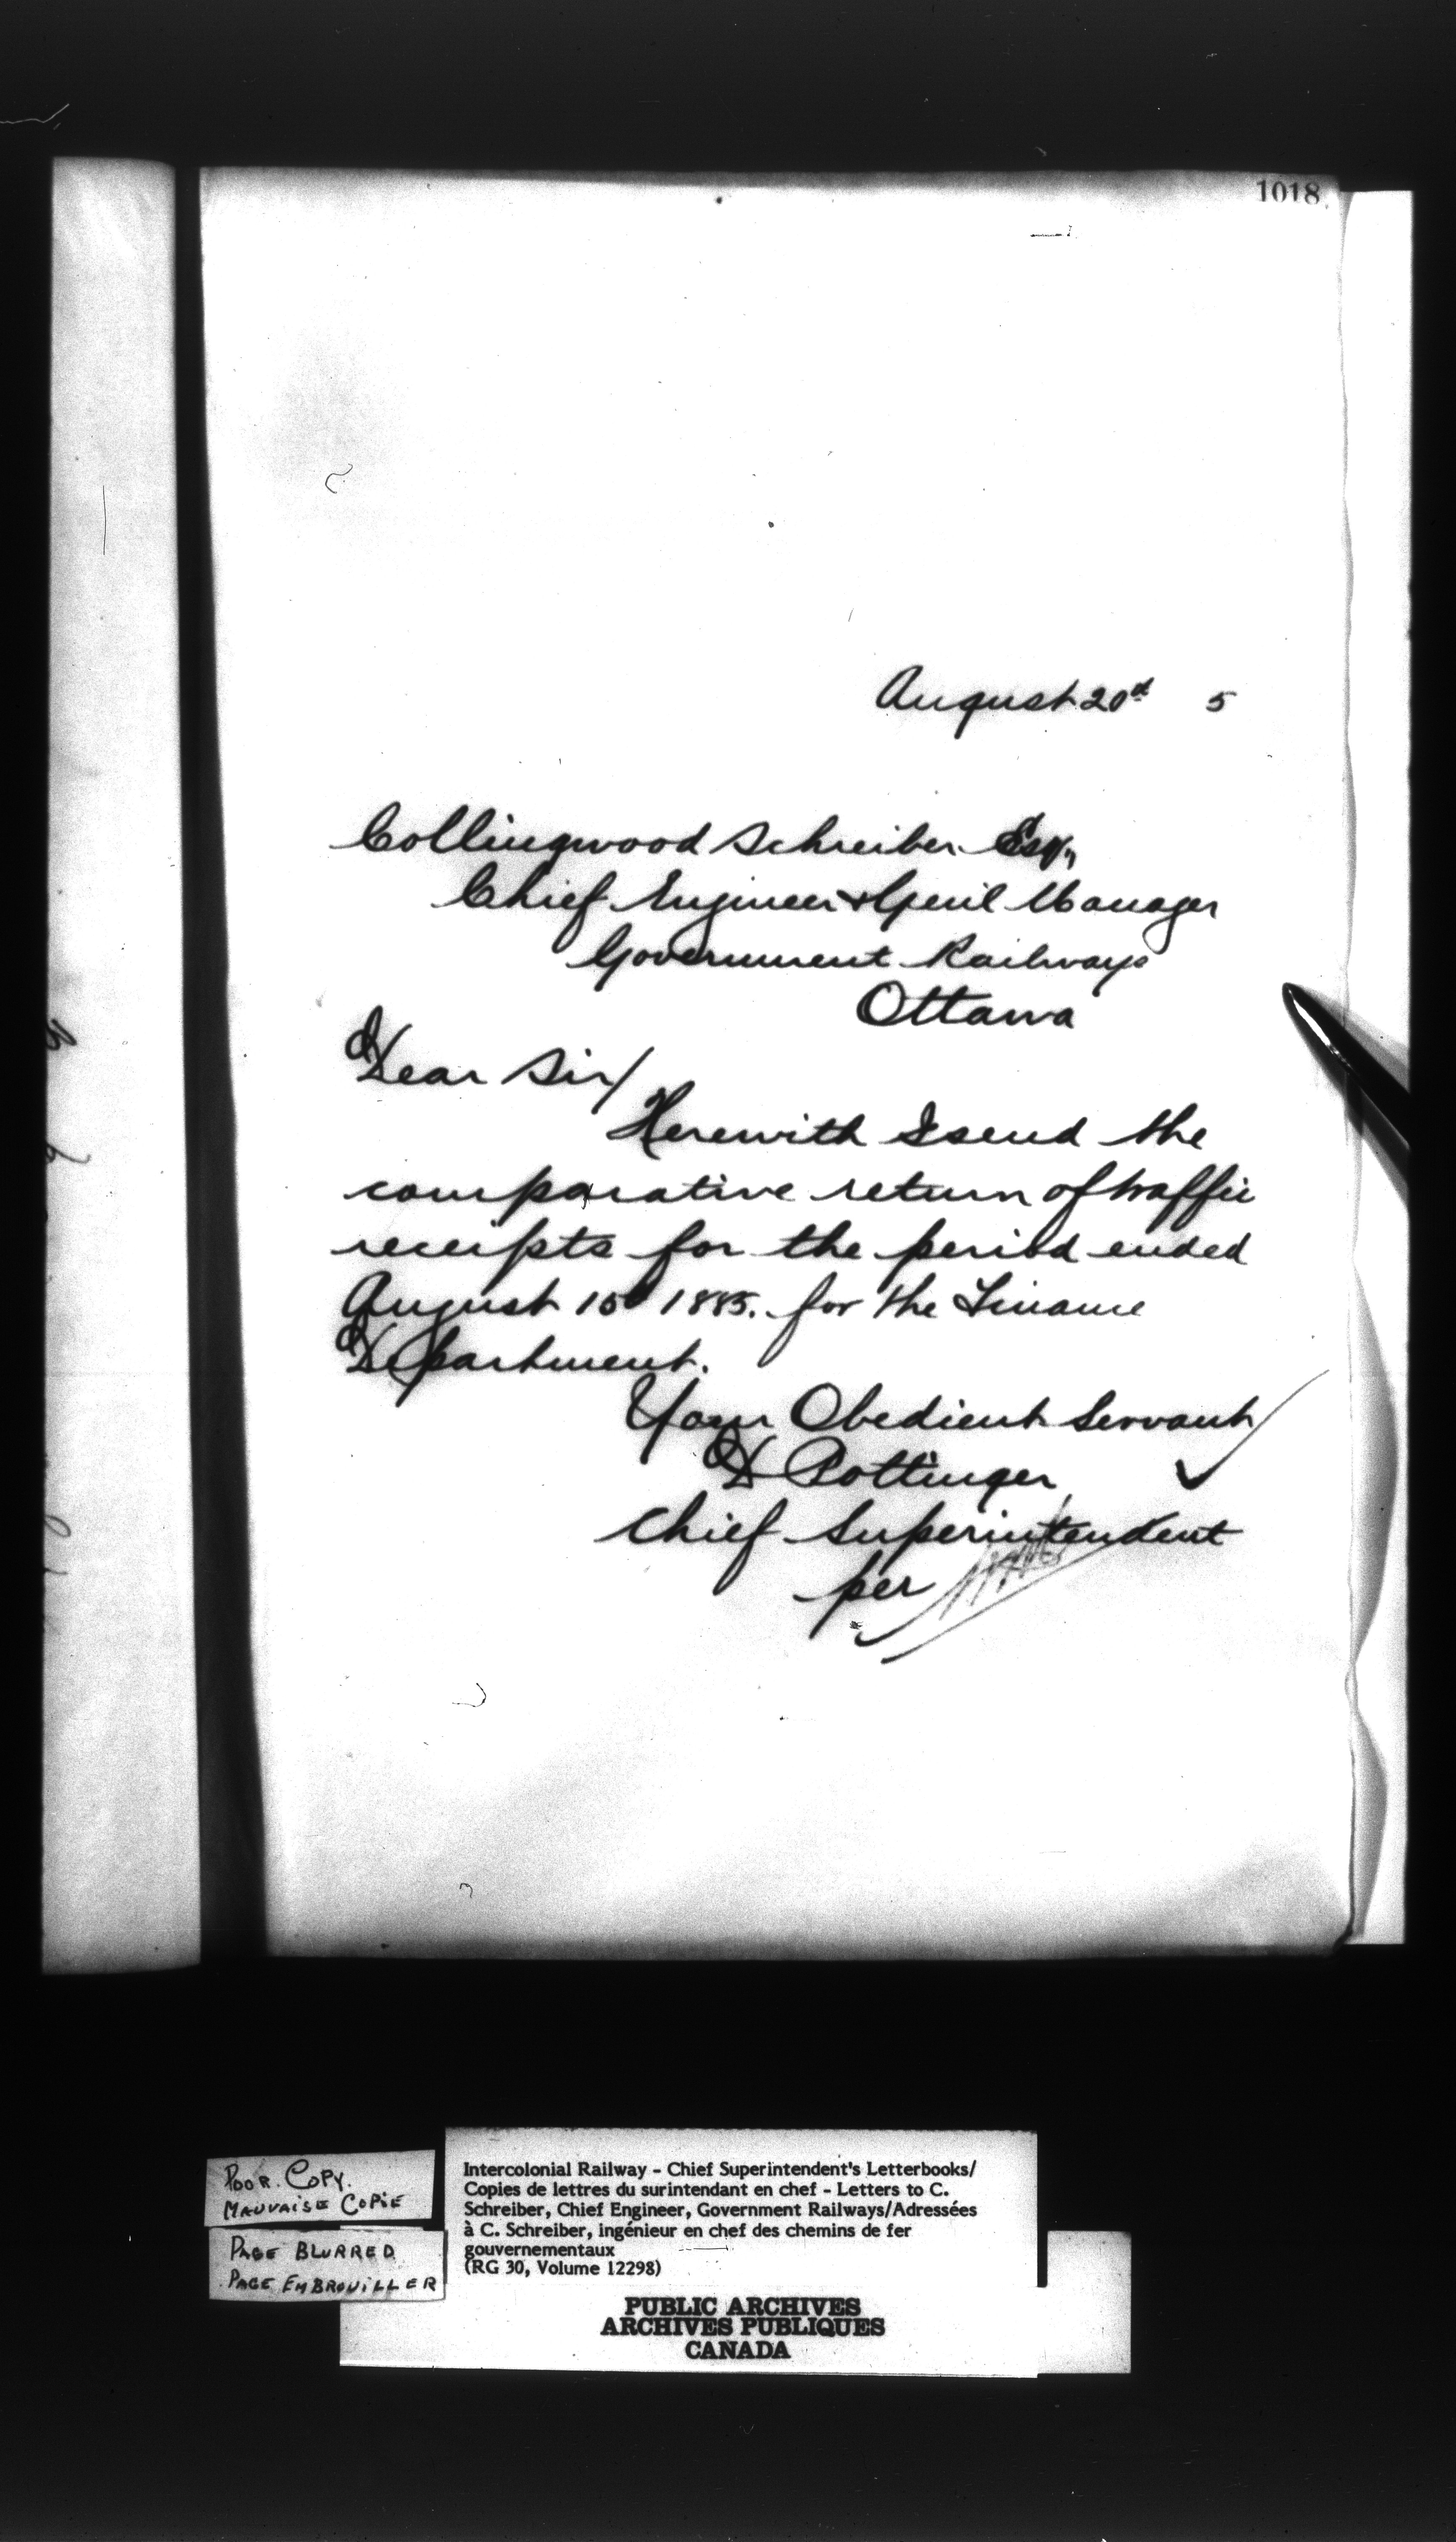 1018
August 20d 5
Collingwood Schreiber Esq,
Chief Engineer & Genl Manager
Government Railways
Ottawa
Dear Sir/
Herewith I send the
comparative return of traffic
receipts for the period ended
August 15 1885. for the Finance
Department.
Your Obedient Servant
D Pottinger
Chief Superintendent
per
POOR COPY.
MAUVAISE COPIE
PAGE BLURRED
PAGE EMBROUILLER
Intercolonial Railway - Chief Superintendent's Letterbooks/
Copies de lettres du surintendant en chef - Letters to C.
Schreiber, Chief Engineer, Government Railways/Adressées
à C. Schreiber, ingénieur en chef des chemins de fer
gouvernementaux
(RG 30, Volume 12298)
PUBLIC ARCHIVES
ARCHIVES PUBLIQUES
CANADA